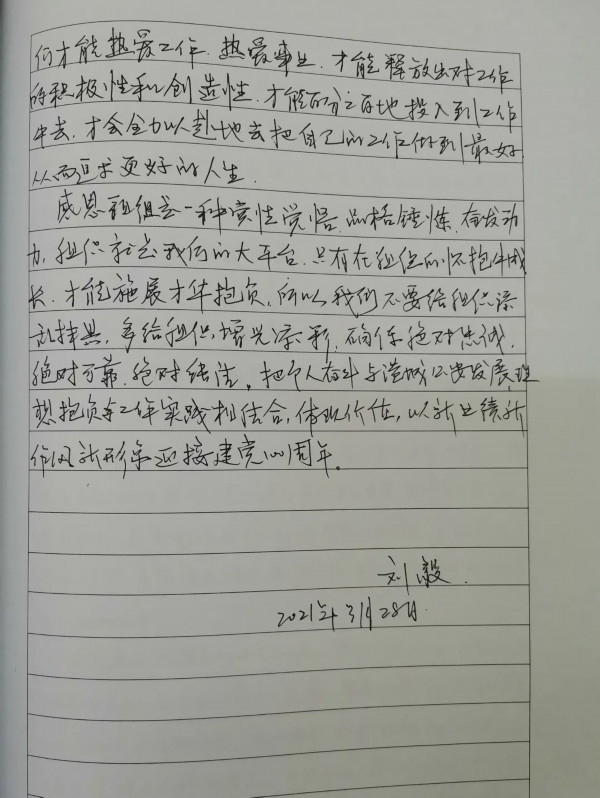 何才能热爱工作、热爱事业,才能释放出对工作
的积极性和创造性,才能百分之百地投入到工作
中去,才会全力以赴地去把自己的工作做到最好,
从而追求更好的人生。
感恩组织是一种党性觉悟、品格锤炼、奋发动
力,组织就是我们的大平台,只有在组织的怀抱中成
长,才能施展才华抱负,所以我们不要给组织添
乱抹黑,多给组织增光添彩,确保绝对忠诚、
绝对可靠、绝对纯洁。把个人奋斗与发展,理
想抱负与工作实践相结合,体现价值,以新业绩新
作风新形象迎接建党100周年。
刘毅
2021年3月28日